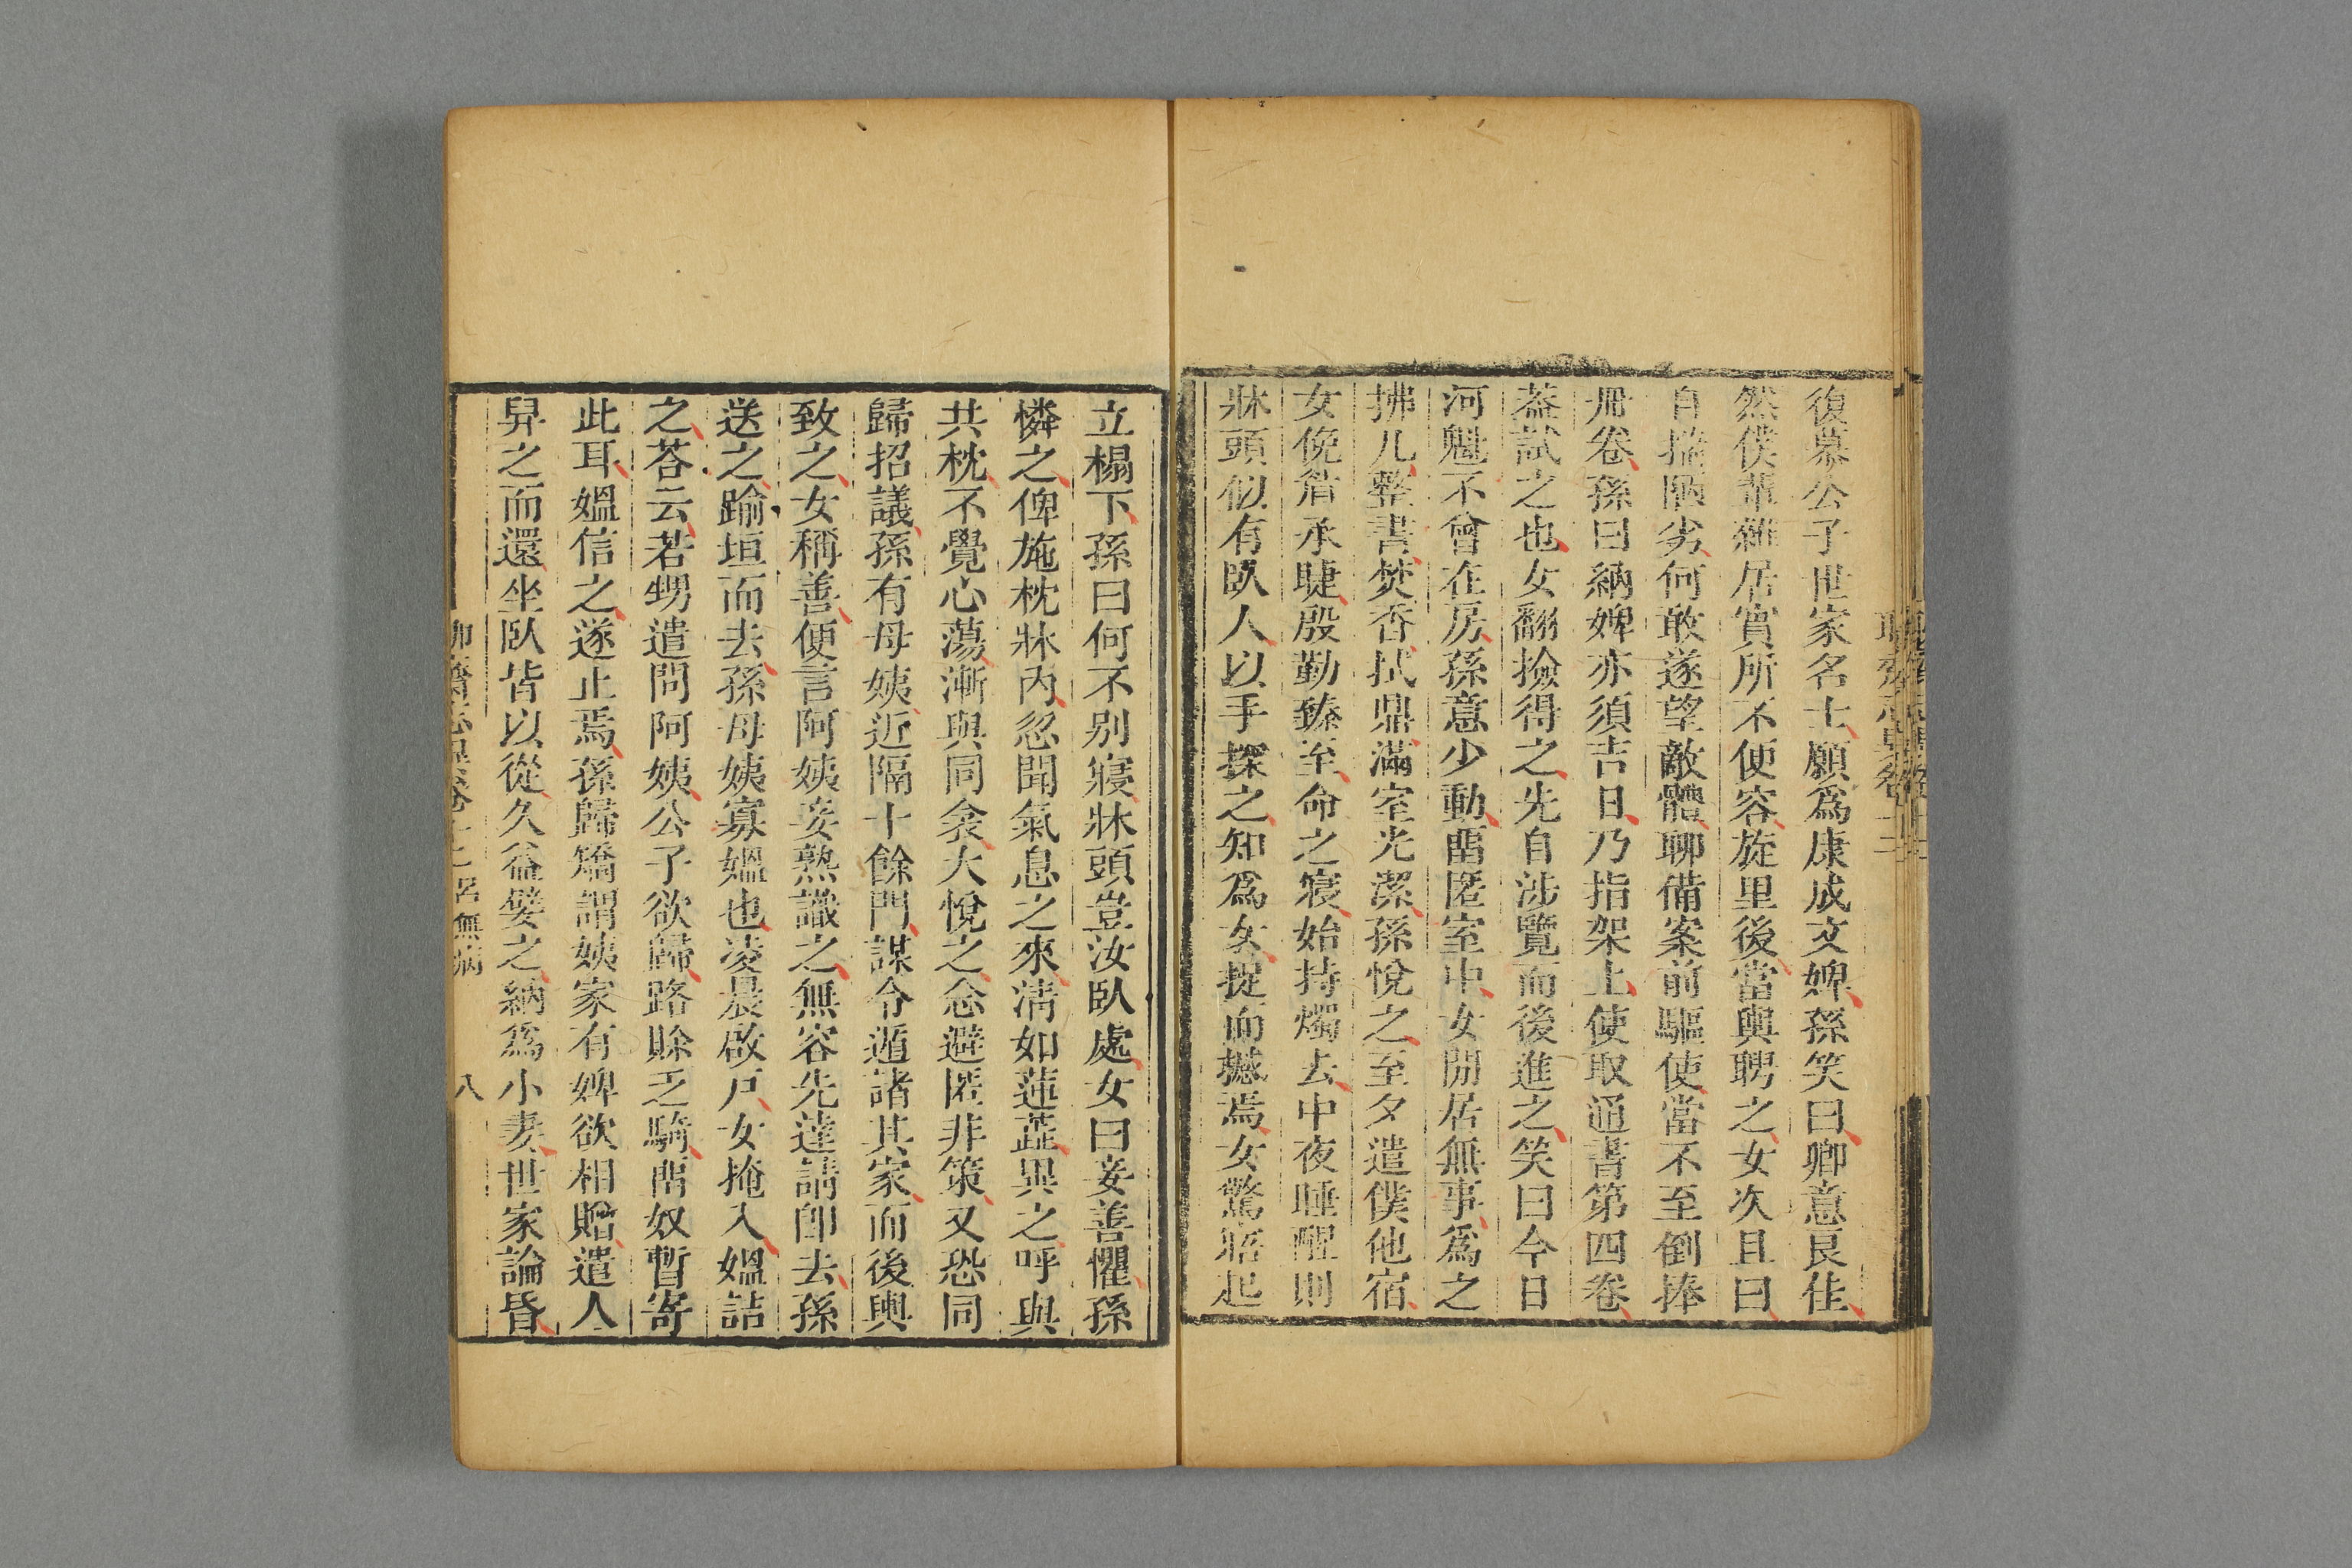 復慕公子世家名士願爲康成文婢孫笑曰卿意良佳
然僕輩雜居實所不便容旋里後當輿聘之女次且曰
自揣陋劣何敢遂望敵體聊備案前驅使當不至倒捧
冊卷孫曰納婢亦須吉日乃指架上使取通書第四卷
葢試之也女翻撿得之先自涉覽而後進之笑曰今日
河魁不曾在房孫意少動畱匿室中女閒居無事爲之
拂几整書焚香拭鼎滿室光潔孫悅之至夕遣僕他宿
女俛眉承睫殷勤臻至命之寢始持燭去中夜睡醒則
牀頭似有臥人以手探之知爲女捉而撼焉女驚寤起
立榻下孫曰何不别寢牀頭豈汝臥處女曰妾善懼孫
憐之俾施枕牀內忽聞氣息之來淸如蓮蕋異之呼與
共枕不覺心蕩漸與同衾大悅之念避匿非策又恐同
歸招議孫有母姨近隔十餘門謀令遁諸其家而後輿
致之女稱善便言阿姨妾熟識之無容先達請卽去孫
送之踰垣而去孫母姨寡媼也凌晨啟戶女掩入媼詰
之荅云若甥遣問阿姨公子欲歸路賒乏騎畱奴暫寄
此耳媼信之遂止焉孫歸矯謂姨家有婢欲相贈遣人
舁之而還坐臥皆以從久益嬖之納爲小妻世家論昏
聊齋志異卷十二 呂無病 八